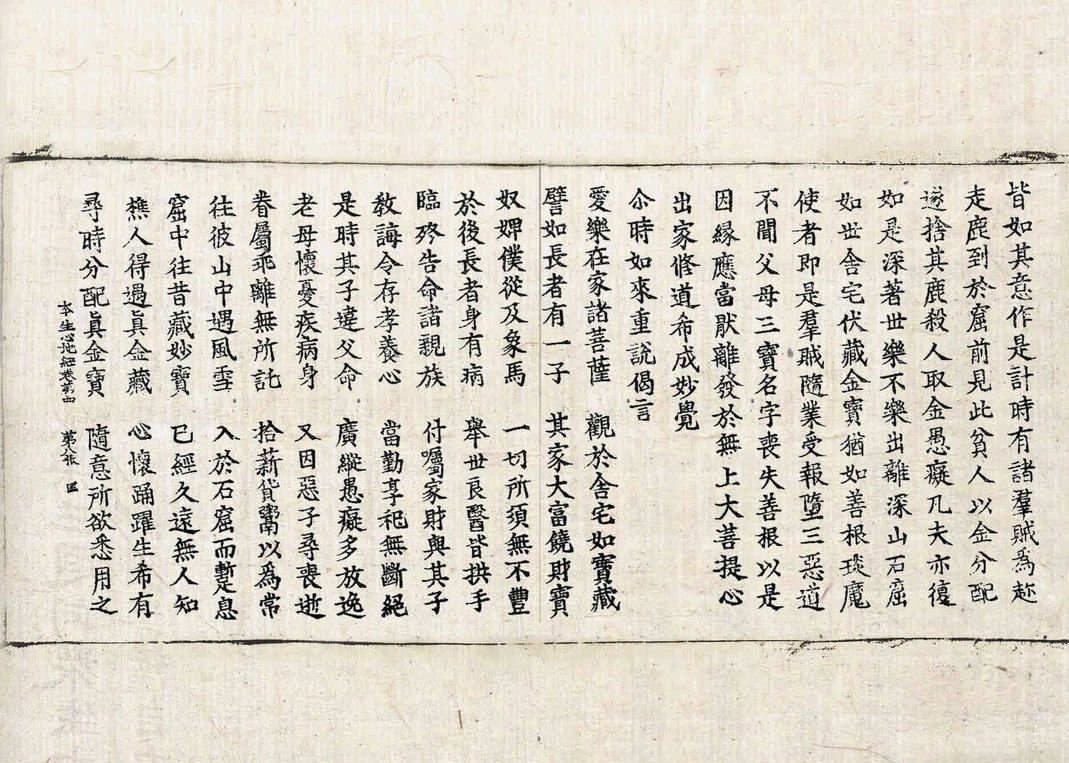 皆如其意作是計時有諸羣賊爲趂
走鹿到於窟前見此貧人以金分配
遂捨其鹿殺人取金愚癡凡夫亦復
如是深著世樂不樂出離深山石窟
如世舍宅伏藏金寶猶如善根琰魔
使者即是羣賊隨業受報墮三惡道
不聞父母三寶名字喪失善根以是
因緣應當猒離發於無上大菩提心
出家修道希成妙覺
尒時如來重說偈言
愛樂在家諸菩薩　觀於舍宅如寶藏
譬如長者有一子　其家大富饒財寶
奴婢僕從及象馬　一切所須無不豐
於後長者身有病　舉世良醫皆拱手
臨終告命諸親族　付囑家財與其子
敎誨令存孝養心　當勤享祀無斷絕
是時其子違父命　廣縱愚癡多放逸
老母懷憂疾病身　又因惡子尋喪逝
眷屬乖離無所託　拾薪貨鬻以爲常
往彼山中遇風雪　入於石窟而暫息
窟中往昔藏妙寶　已經久遠無人知
樵人得遇眞金藏　心懷踊躍生希有
尋時分配眞金寶　隨意所欲悉用之
本生心地經卷第四　第八張